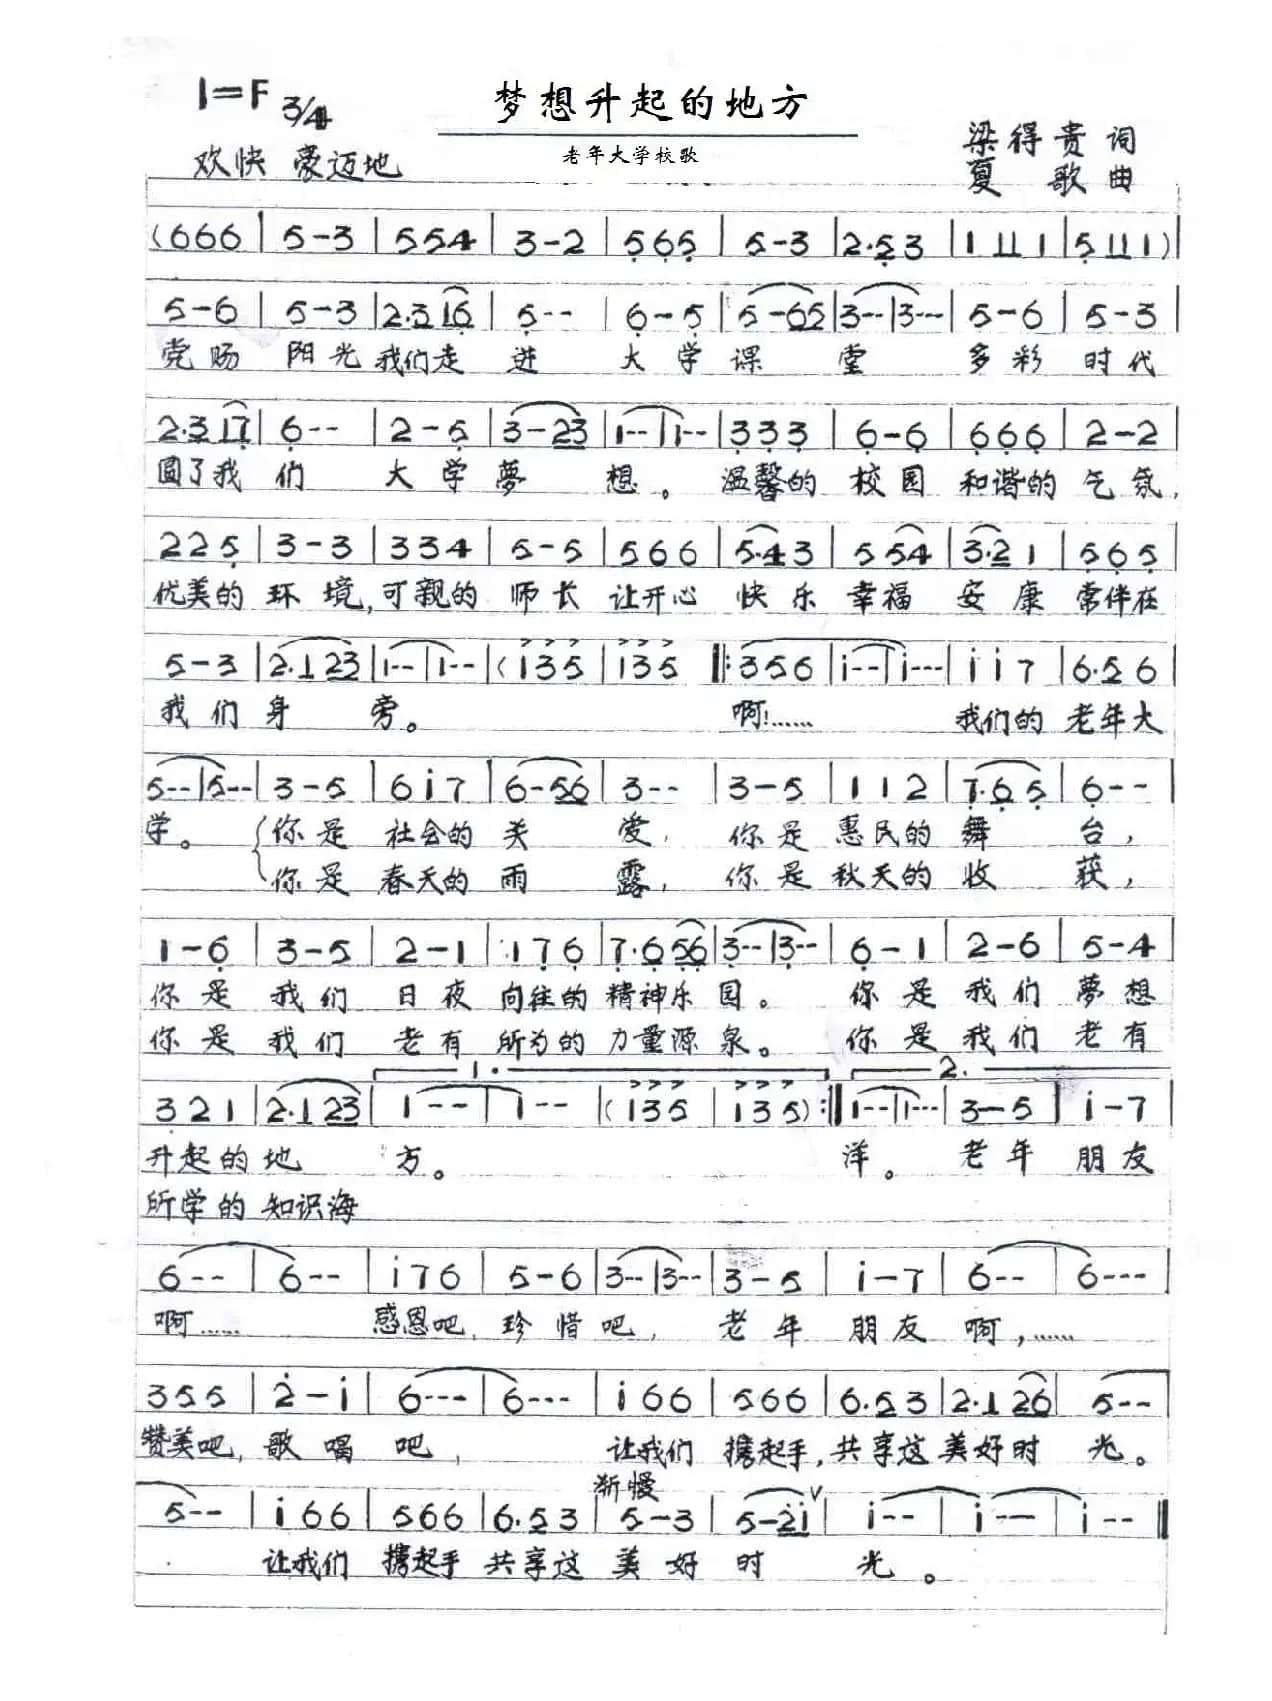 1=F 3/4
梦想升起的地方
老年大学校歌
欢快 豪迈地
梁得贵 词
夏歌 曲
(666 | 5-3 | 554 | 3-2 | 565 | 5-3 | 2·53 | 1 11 1 | 5 11 1)
5-6 | 5-3 | 2·316 | 5-- | 6-5 | 5-65 | 3-- | 3-- | 5-6 | 5-3
党旸 阳光 我们走 进 大学 课 堂 多彩 时代
2·317 | 6-- | 2-5 | 3-23 | 1-- | 1-- | 333 | 6-6 | 666 | 2-2
圆了我 们 大学 夢 想。 温馨的 校园 和谐的 气氛,
225 | 3-3 | 334 | 5-5 | 566 | 5·43 | 554 | 3·21 | 565
优美的 环境, 可亲的 师长 让开心 快乐 幸福 安康 常伴在
5-3 | 2·123 | 1-- | 1-- | (135 | 135 ‖: 356 | i-- | i-- | ii7 | 6·56
我们 身 旁。 啊!…… 我们的 老年大
5-- | 5-- | 3-5 | 6i7 | 6-56 | 3-- | 3-5 | 112 | 7·65 | 6--
学。 你是 社会的 关 爱, 你是 惠民的 舞 台,
你是 春天的 雨 露, 你是 秋天的 收 获,
1-6 | 3-5 | 2-1 | 176 | 7·656 | 3-- | 3-- | 6-1 | 2-6 | 5-4
你是 我们 日夜 向往的 精神乐 园。 你是 我们 夢想
你是 我们 老有 所为的 力量源 泉。 你是 我们 老有
1. 2.
321 | 2·123 | 1-- | 1-- | (135 | 135) :‖ 1-- | 1-- | 3-5 | i-7
升起的 地 方。 洋。 老年 朋友
所学的 知识海
6-- | 6-- | i76 | 5-6 | 3-- | 3-- | 3-5 | i-7 | 6-- | 6---
啊…… 感恩吧, 珍惜 吧, 老年 朋友 啊,……
355 | 2-i | 6--- | 6--- | i66 | 566 | 6·53 | 2·126 | 5--
赞美吧, 歌唱 吧, 让我们 携起手, 共享这 美好时 光。
渐慢
5-- | i66 | 566 | 6·53 | 5-3 | 5-2i | i-- | i-- | i-- ‖
让我们 携起手 共享这 美好 时 光。